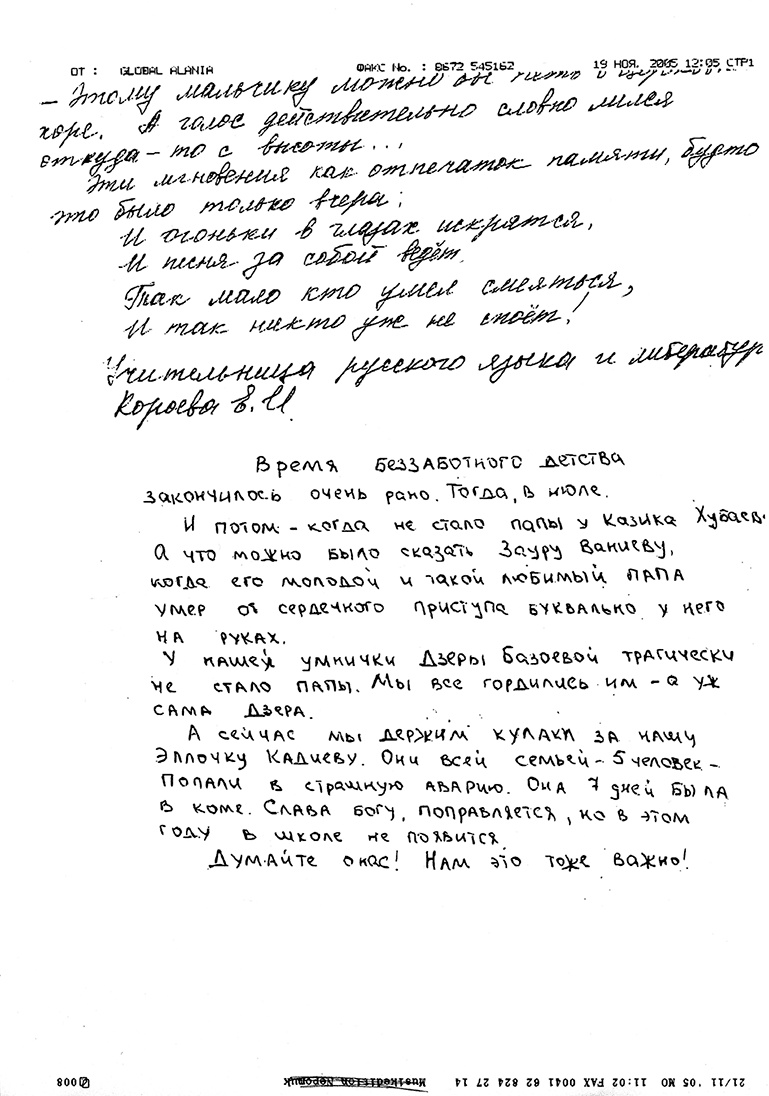 ОТ : GLOBAL ALANIA ФАКС No. : 8672 545162 19 НОЯ. 2005 12:05 СТР1
- Этому мальчику можно он
хоре. А голос действительно словно лился
откуда-то с высоты...
Эти мгновения как отпечаток памяти, будто
это было только вчера:
И огоньки в глазах искрятся,
И песня за собой ведёт.
Так мало кто умел смеяться,
И так никто уже не споёт!
Учительница русского языка и литератур
Короева Е.И.
Время беззаботного детства
закончилось очень рано. Тогда, в июле.
И потом - когда не стало папы у Казика Хубаев.
А что можно было сказать Зауру Ваниеву,
когда его молодой и такой любимый папа
умер от сердечного приступа буквально у него
на руках.
У нашей умнички Дзеры Базоевой трагически
не стало папы. Мы все гордились им - а уж
сама Дзера.
А сейчас мы держим кулаки за нашу
Эллочку Кадиеву. Они всей семьей - 5 человек -
попали в страшную аварию. Она 7 дней была
в коме. Слава Богу, поправляется, но в этом
году в школе не появится.
Думайте о нас! Нам это тоже важно!
21/11 '05 MO 11:02 FAX 0041 62 824 27 14 Musikedition Nepomuk 008